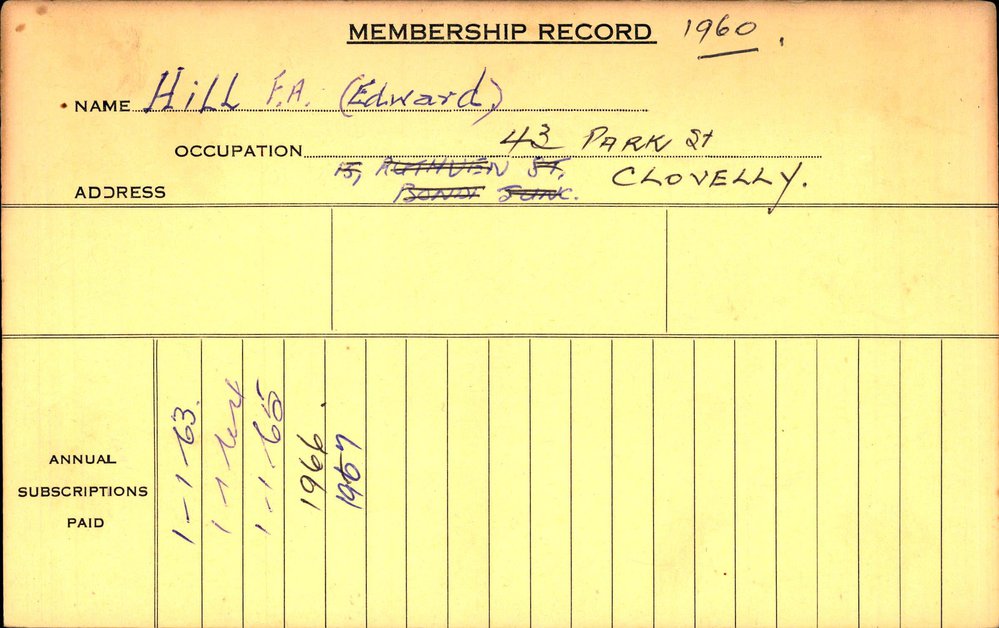 MEMBERSHIP RECORD 1960.
NAME Hill F.A. (Edward)
OCCUPATION 43 PARK St
15, RUTHVEN ST, CLOVELLY.
ADDRESS BONDI JUNC.
ANNUAL
SUBSCRIPTIONS
PAID
1-1-63.
1-1-64
1-1-65
1966.
1967